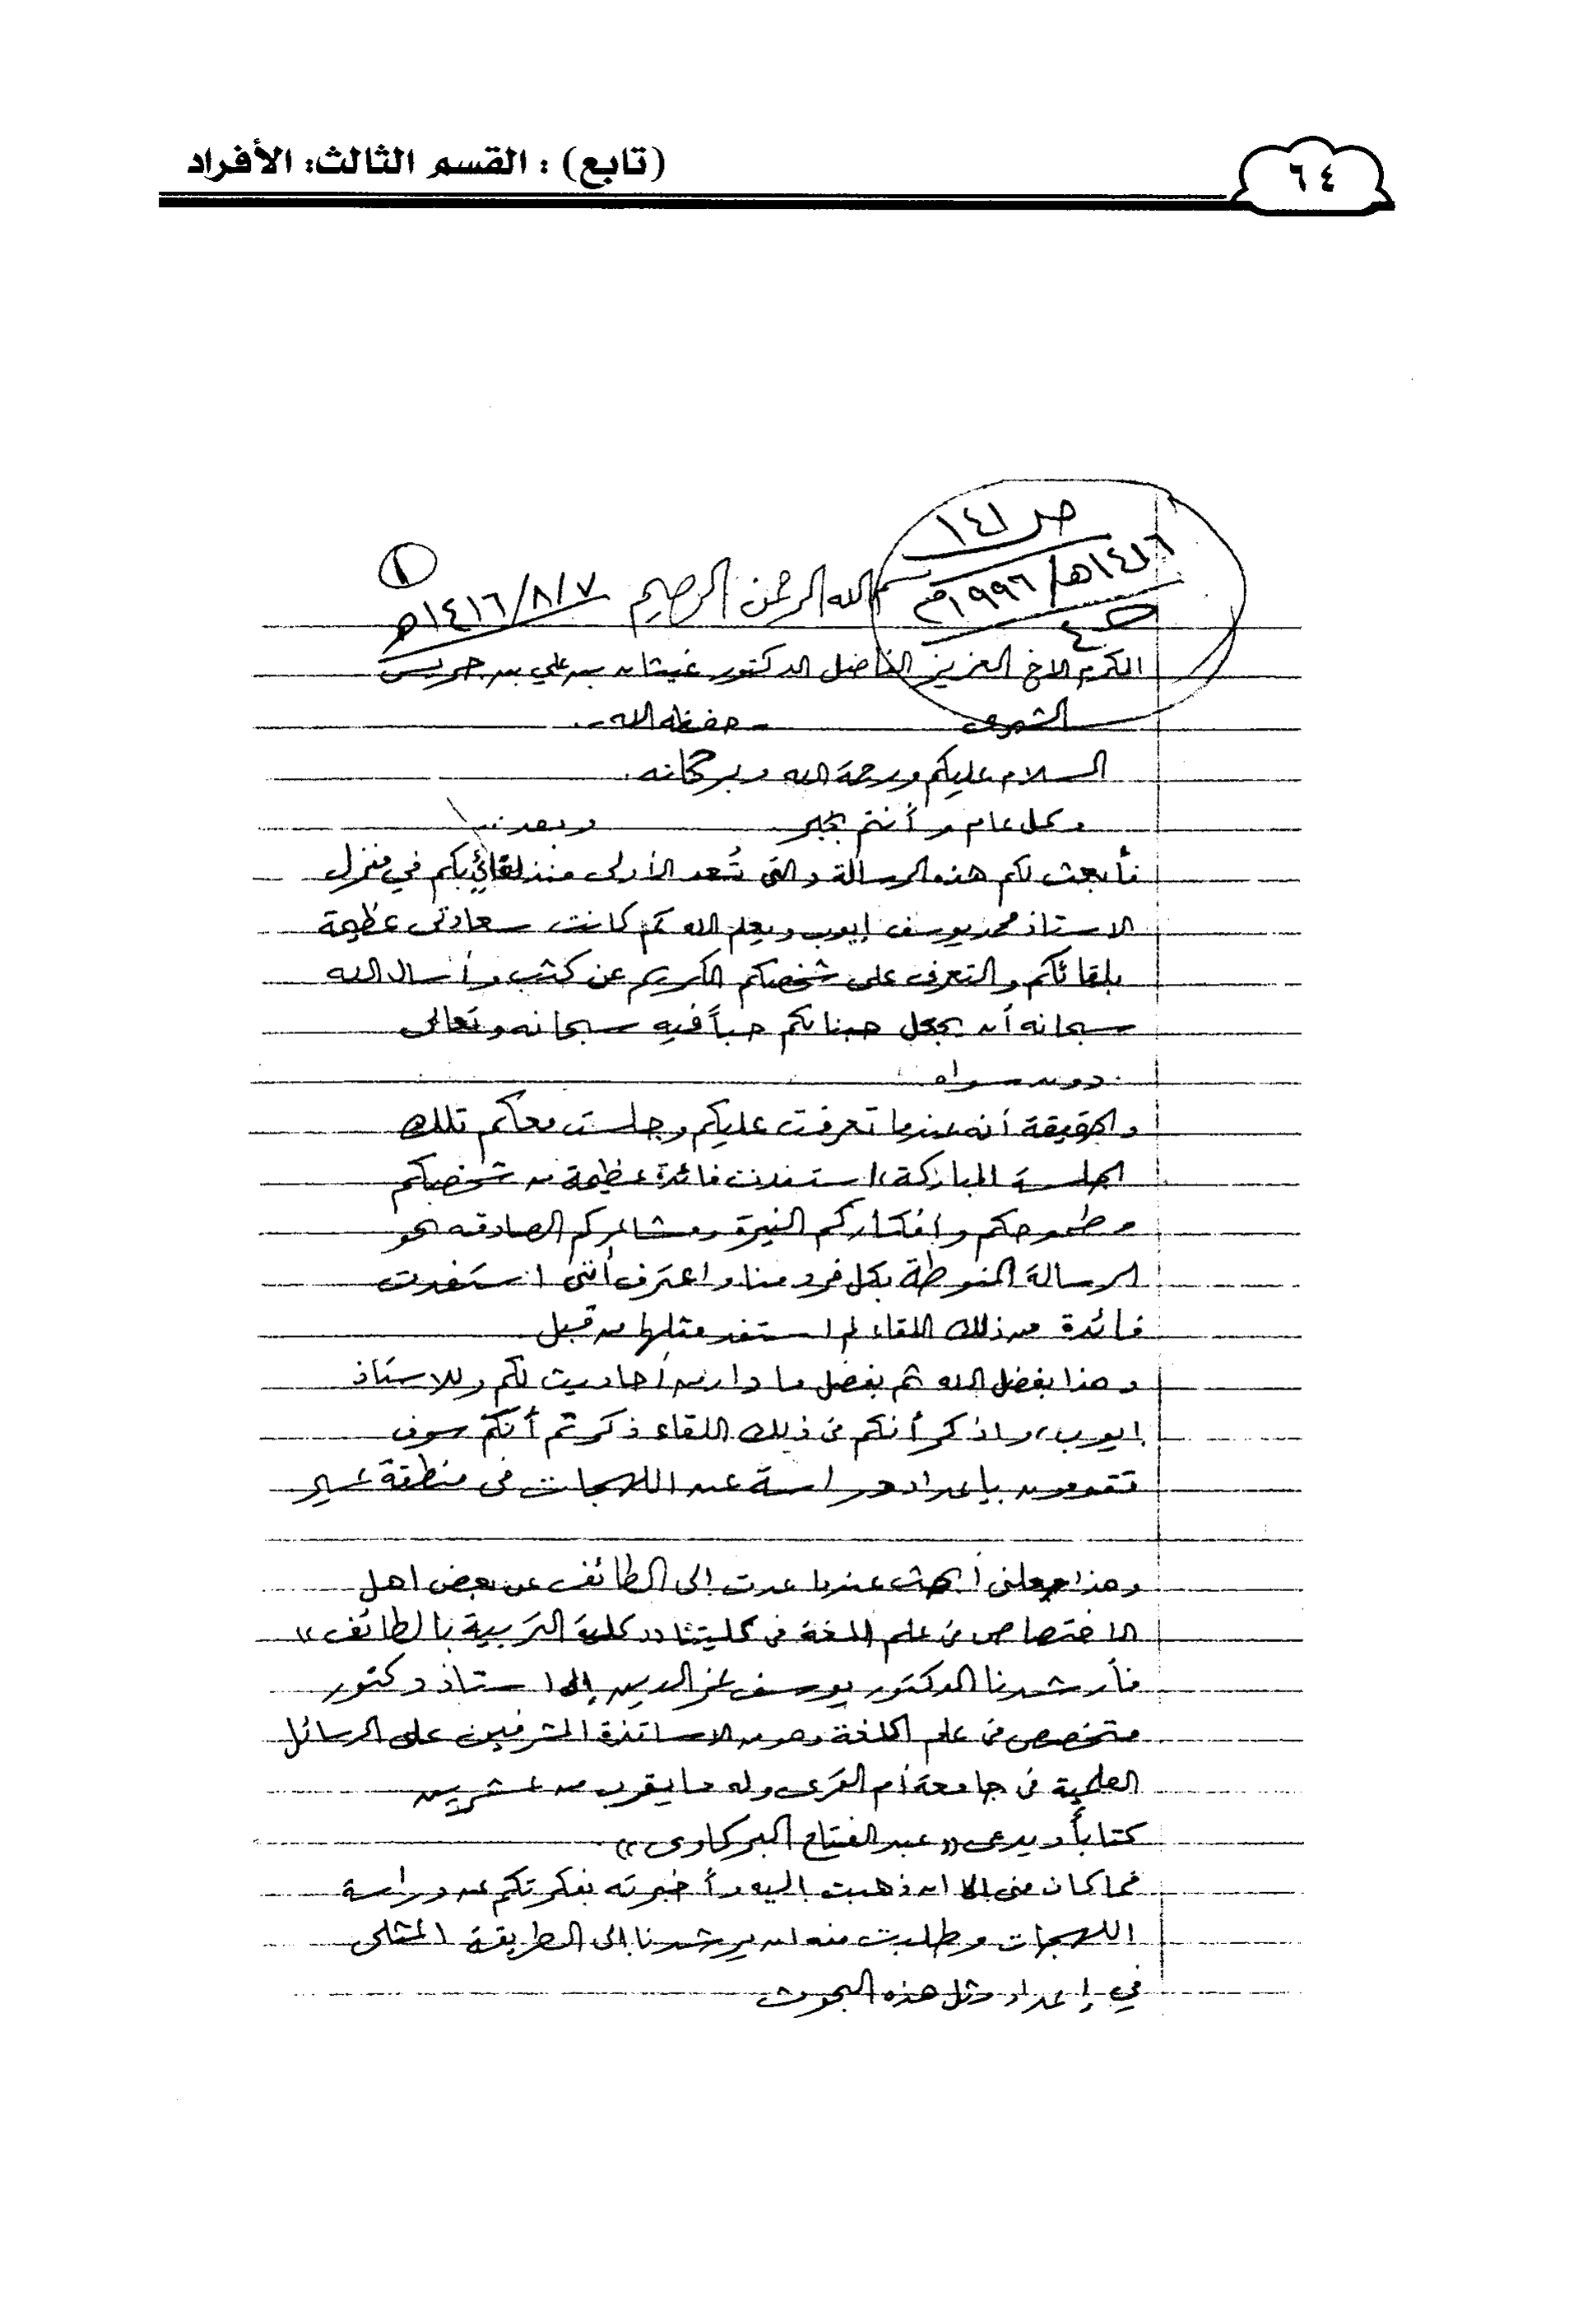 ٦٤
(تابع) : القسم الثالث: الأفراد
ص ١٤١
١٤١٦هـ/١٩٩٦م
١
بسم الله الرحمن الرحيم
١٤١٦/٨/٧هـ
المكرم الاخ العزيز الفاضل الدكتور غيثان بن علي بن جريس
الشهري - حفظه الله -.
السلام عليكم ورحمة الله وبركاته.
وكل عام وأنتم بخير وبعد..
فأبعث لكم هذه الرسالة والتي تُعد الأولى منذ لقائي بكم في منزل
الاستاذ محمد يوسف ايوب ويعلم الله كم كانت سعادتي عظيمة
بلقائكم والتعرف على شخصكم الكريم عن كثب وأسال الله
سبحانه أن يجعل حبنا لكم حباً فيه سبحانه وتعالى
دون سواه
والحقيقة أنه عندما تعرفت عليكم وجلست معكم تلك
الجلسة المباركة، استفدت فائدة عظيمة من شخصكم
وطموحكم وافكاركم النيرة ومشاعركم الصادقه نحو
الرسالة المنوطة بكل فرد منا واعترف أنني استفدت
فائدة من ذلك اللقاء لم استفد مثلها من قبل
وهذا بفضل الله ثم بفضل ما دار من أحاديث لكم وللاستاذ
ايوب، واذكر أنكم في ذلك اللقاء ذكرتم أنكم سوف
تقومون باعداد دراسة عن اللهجات في منطقة عسير
وهذا جعلني أبحث عندما عدت إلى الطائف عن بعض اهل
الاختصاص في علم اللغة في كليتنا «كلية التربية بالطائف»
فأرشدنا الدكتور يوسف عز الدين إلى استاذ دكتور
متخصص في علم اللغة وهو من الاساتذة المشرفين على الرسائل
العلمية في جامعة أم القرى وله ما يقرب من عشرين
كتاباً ويدعى «عبد الفتاح البركاوي».
فما كان مني إلا ان ذهبت إليه وأخبرته بفكرتكم عن دراسة
اللهجات وطلبت منه ان يرشدنا إلى الطريقة المثلى
في إعداد مثل هذه البحوث